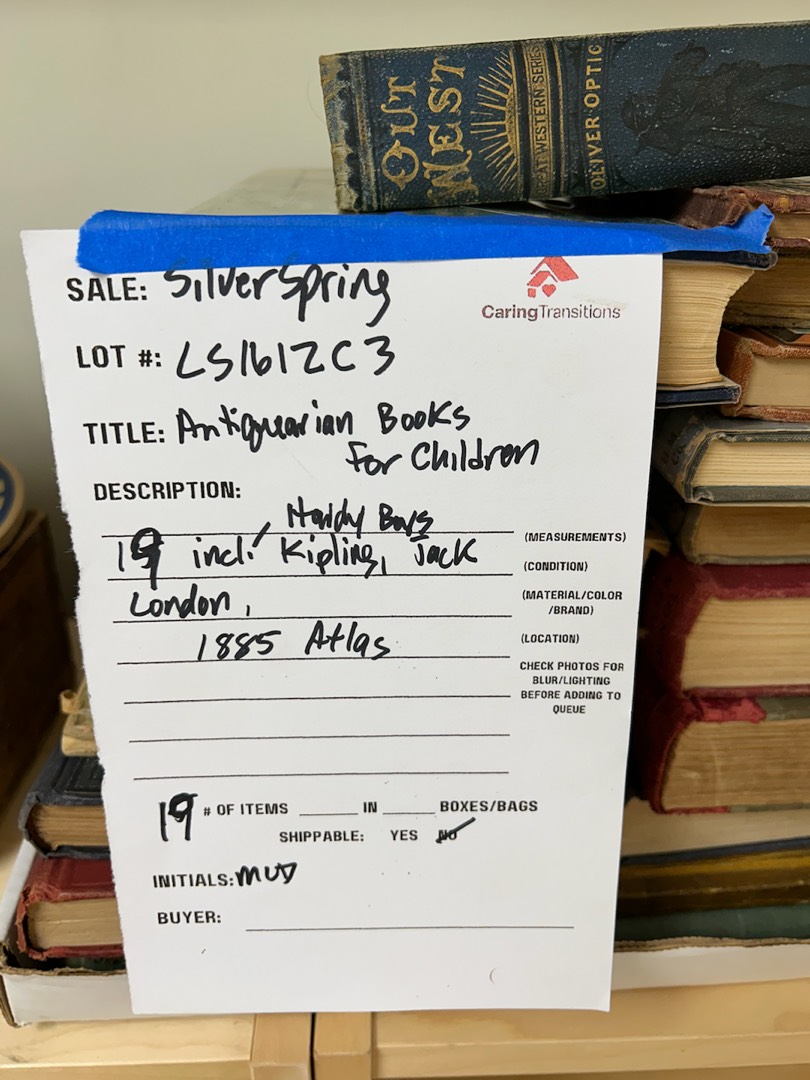 OUT
WEST
GREAT WESTERN SERIES
OLIVER OPTIC
SALE: Silver Spring
CaringTransitions
LOT #: LS1612C3
TITLE: Antiquarian Books
for Children
DESCRIPTION:
Hardy Boys
(MEASUREMENTS)
19 incl. Kipling, Jack
(CONDITION)
London,
(MATERIAL/COLOR
/BRAND)
1885 Atlas
(LOCATION)
CHECK PHOTOS FOR
BLUR/LIGHTING
BEFORE ADDING TO
QUEUE
19 # OF ITEMS ______ IN ______ BOXES/BAGS
SHIPPABLE: YES NO
INITIALS: MUD
BUYER: